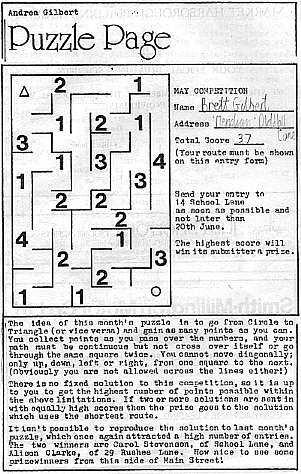 Andrea Gilbert
Puzzle Page
2 1
1 1 2 1
3 1 3 4
1 3
2 2
4 2 1 2
2 3
2 2
MAY COMPETITION
Name Brett Gilbert
Address
Total Score 37
(Your route must be shown
on this entry form)
Send your entry to
14 School Lane
as soon as possible and
not later than
20th June.
The highest score will
win its submitter a prize.
The idea of this month's puzzle is to go from Circle to
Triangle (or vice versa) and gain as many points as you can.
You collect points as you pass over the numbers, and your
path must be continuous but not cross over itself or go
through the same square twice. You cannot move diagonally;
only up, down, left or right, from one square to the next.
(Obviously you are not allowed across the lines either!)
There is no fixed solution to this competition, so it is up
to you to get the highest number of points possible within
the above limitations. If two or more solutions are sent in
with equally high scores then the prize goes to the solution
which uses the shortest route.
It isn't possible to reproduce the solution to last month's
puzzle, which once again attracted a high number of entries.
The two winners are Carol Stevenson, of School Lane, and
Alison Clarke, of 29 Rushes Lane. How nice to see some
prizewinners from this side of Main Street!